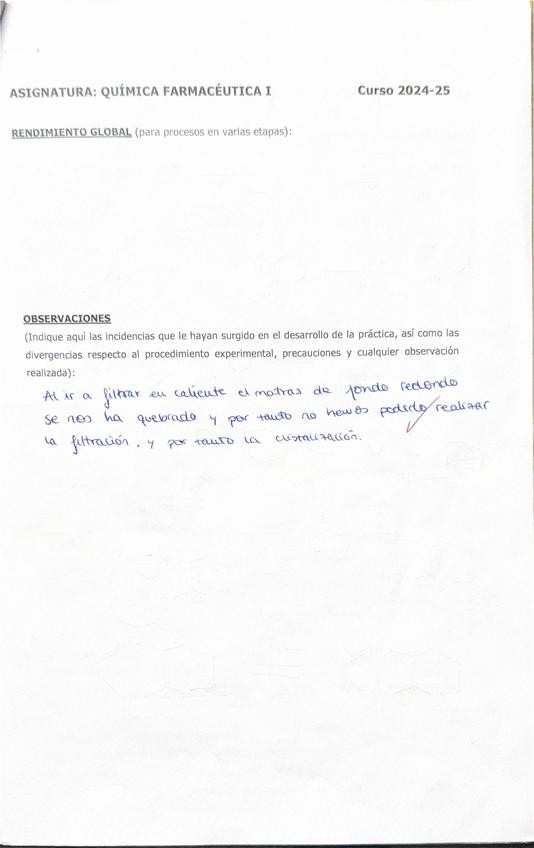 ASIGNATURA: QUÍMICA FARMACÉUTICA I Curso 2024-25
RENDIMIENTO GLOBAL (para procesos en varias etapas):
OBSERVACIONES
(Indique aquí las incidencias que le hayan surgido en el desarrollo de la práctica, así como las
divergencias respecto al procedimiento experimental, precauciones y cualquier observación
realizada):
Al ir a filtrar en caliente el matras de fondo redondo
se nos ha quebrado y por tanto no hemos podido realizar
la filtración, y por tanto la cristalización.